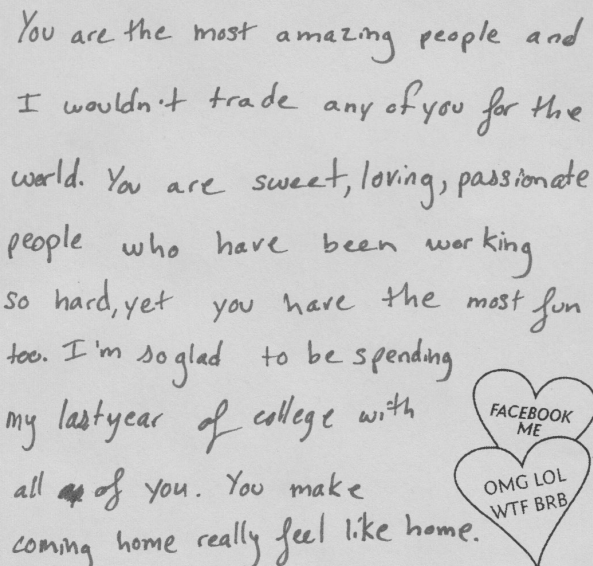 You are the most amazing people and
I wouldn't trade any of you for the
world. You are sweet, loving, passionate
people who have been working
so hard, yet you have the most fun
too. I'm so glad to be spending
my last year of college with
all of you. You make
coming home really feel like home.
FACEBOOK
ME
OMG LOL
WTF BRB